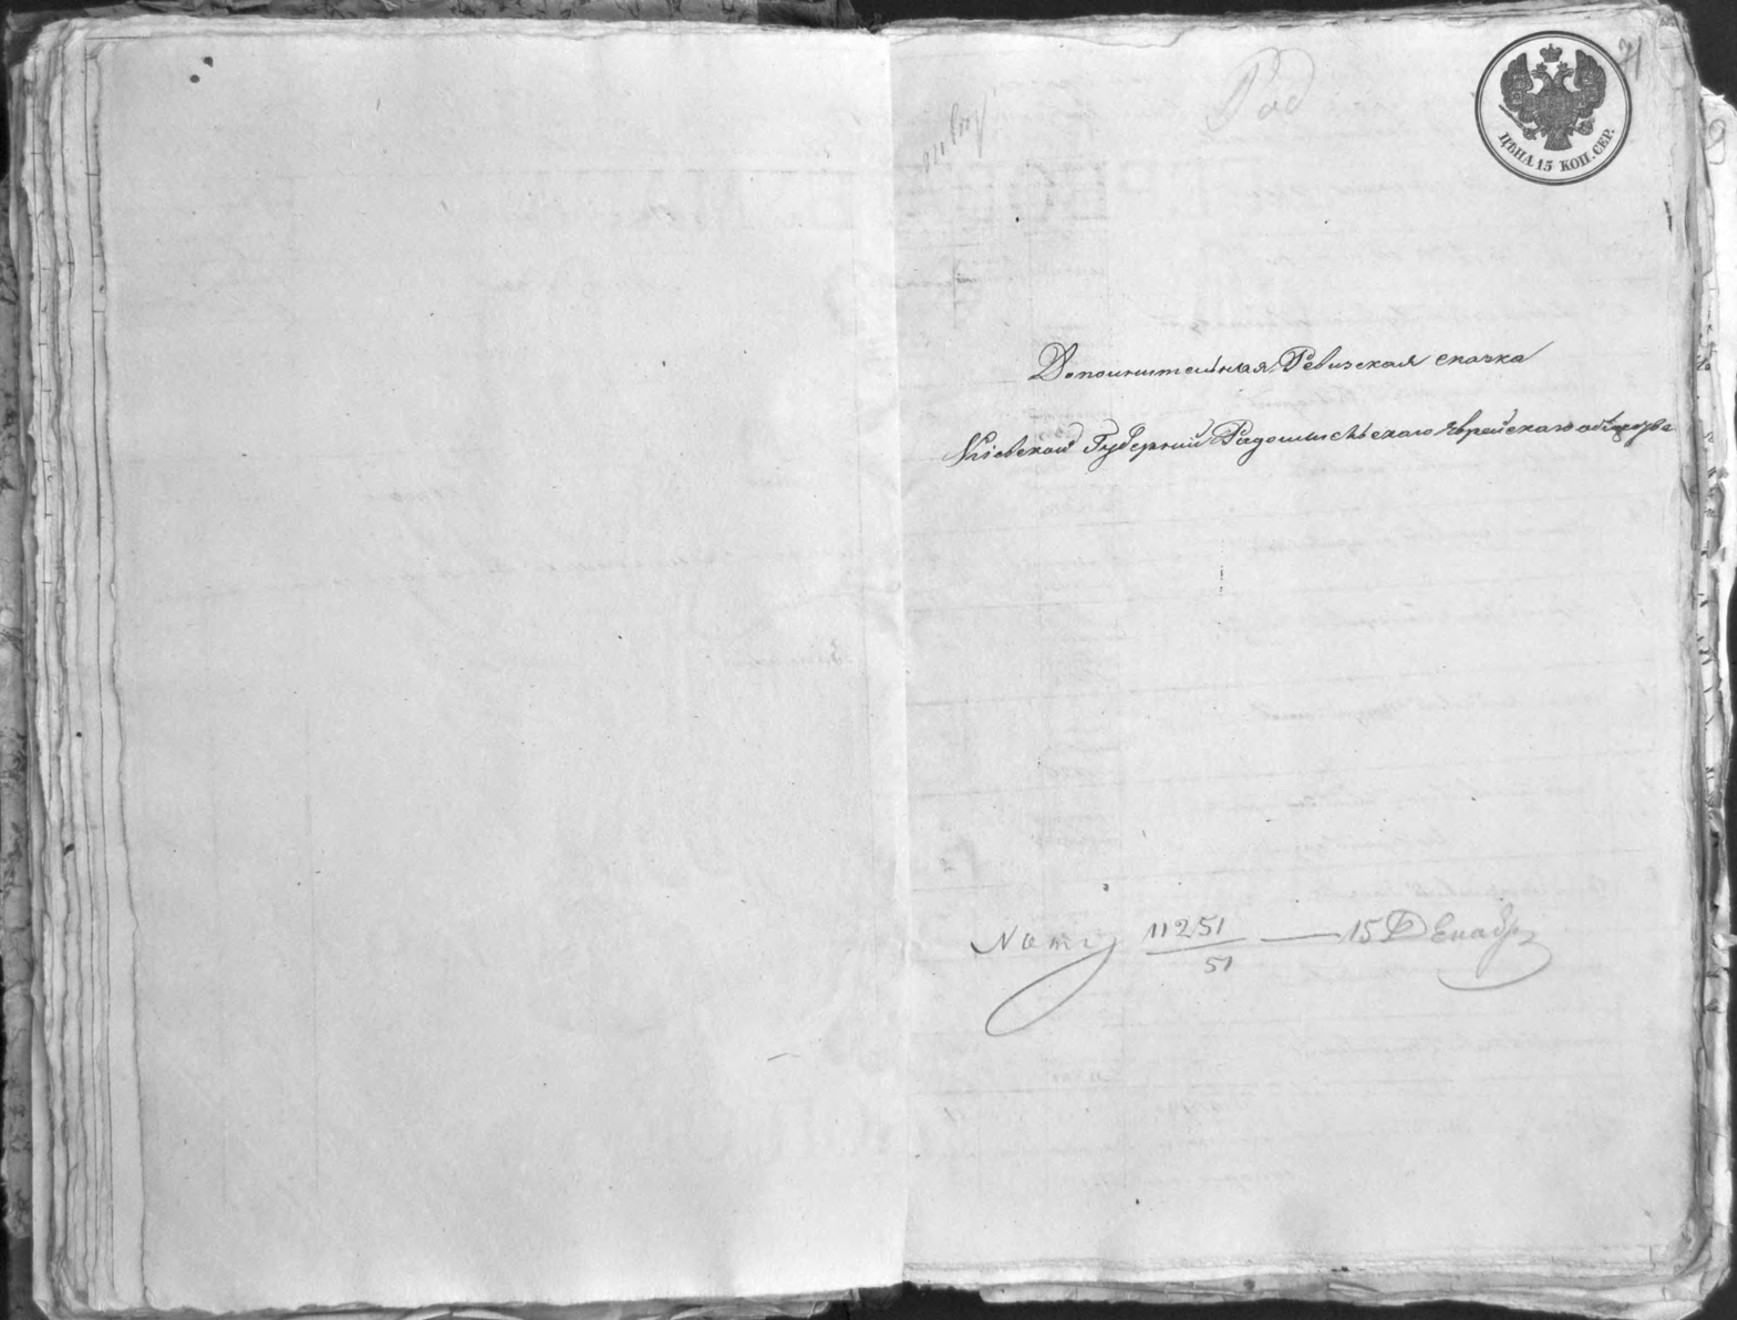 Рад
71
ЦѢНА 15 КОП. СЕР.
Дополнительная Ревизская сказка
Кіевской Губерніи Радомысльскаго Еврейскаго общества
11251
51
— 15 Декабр